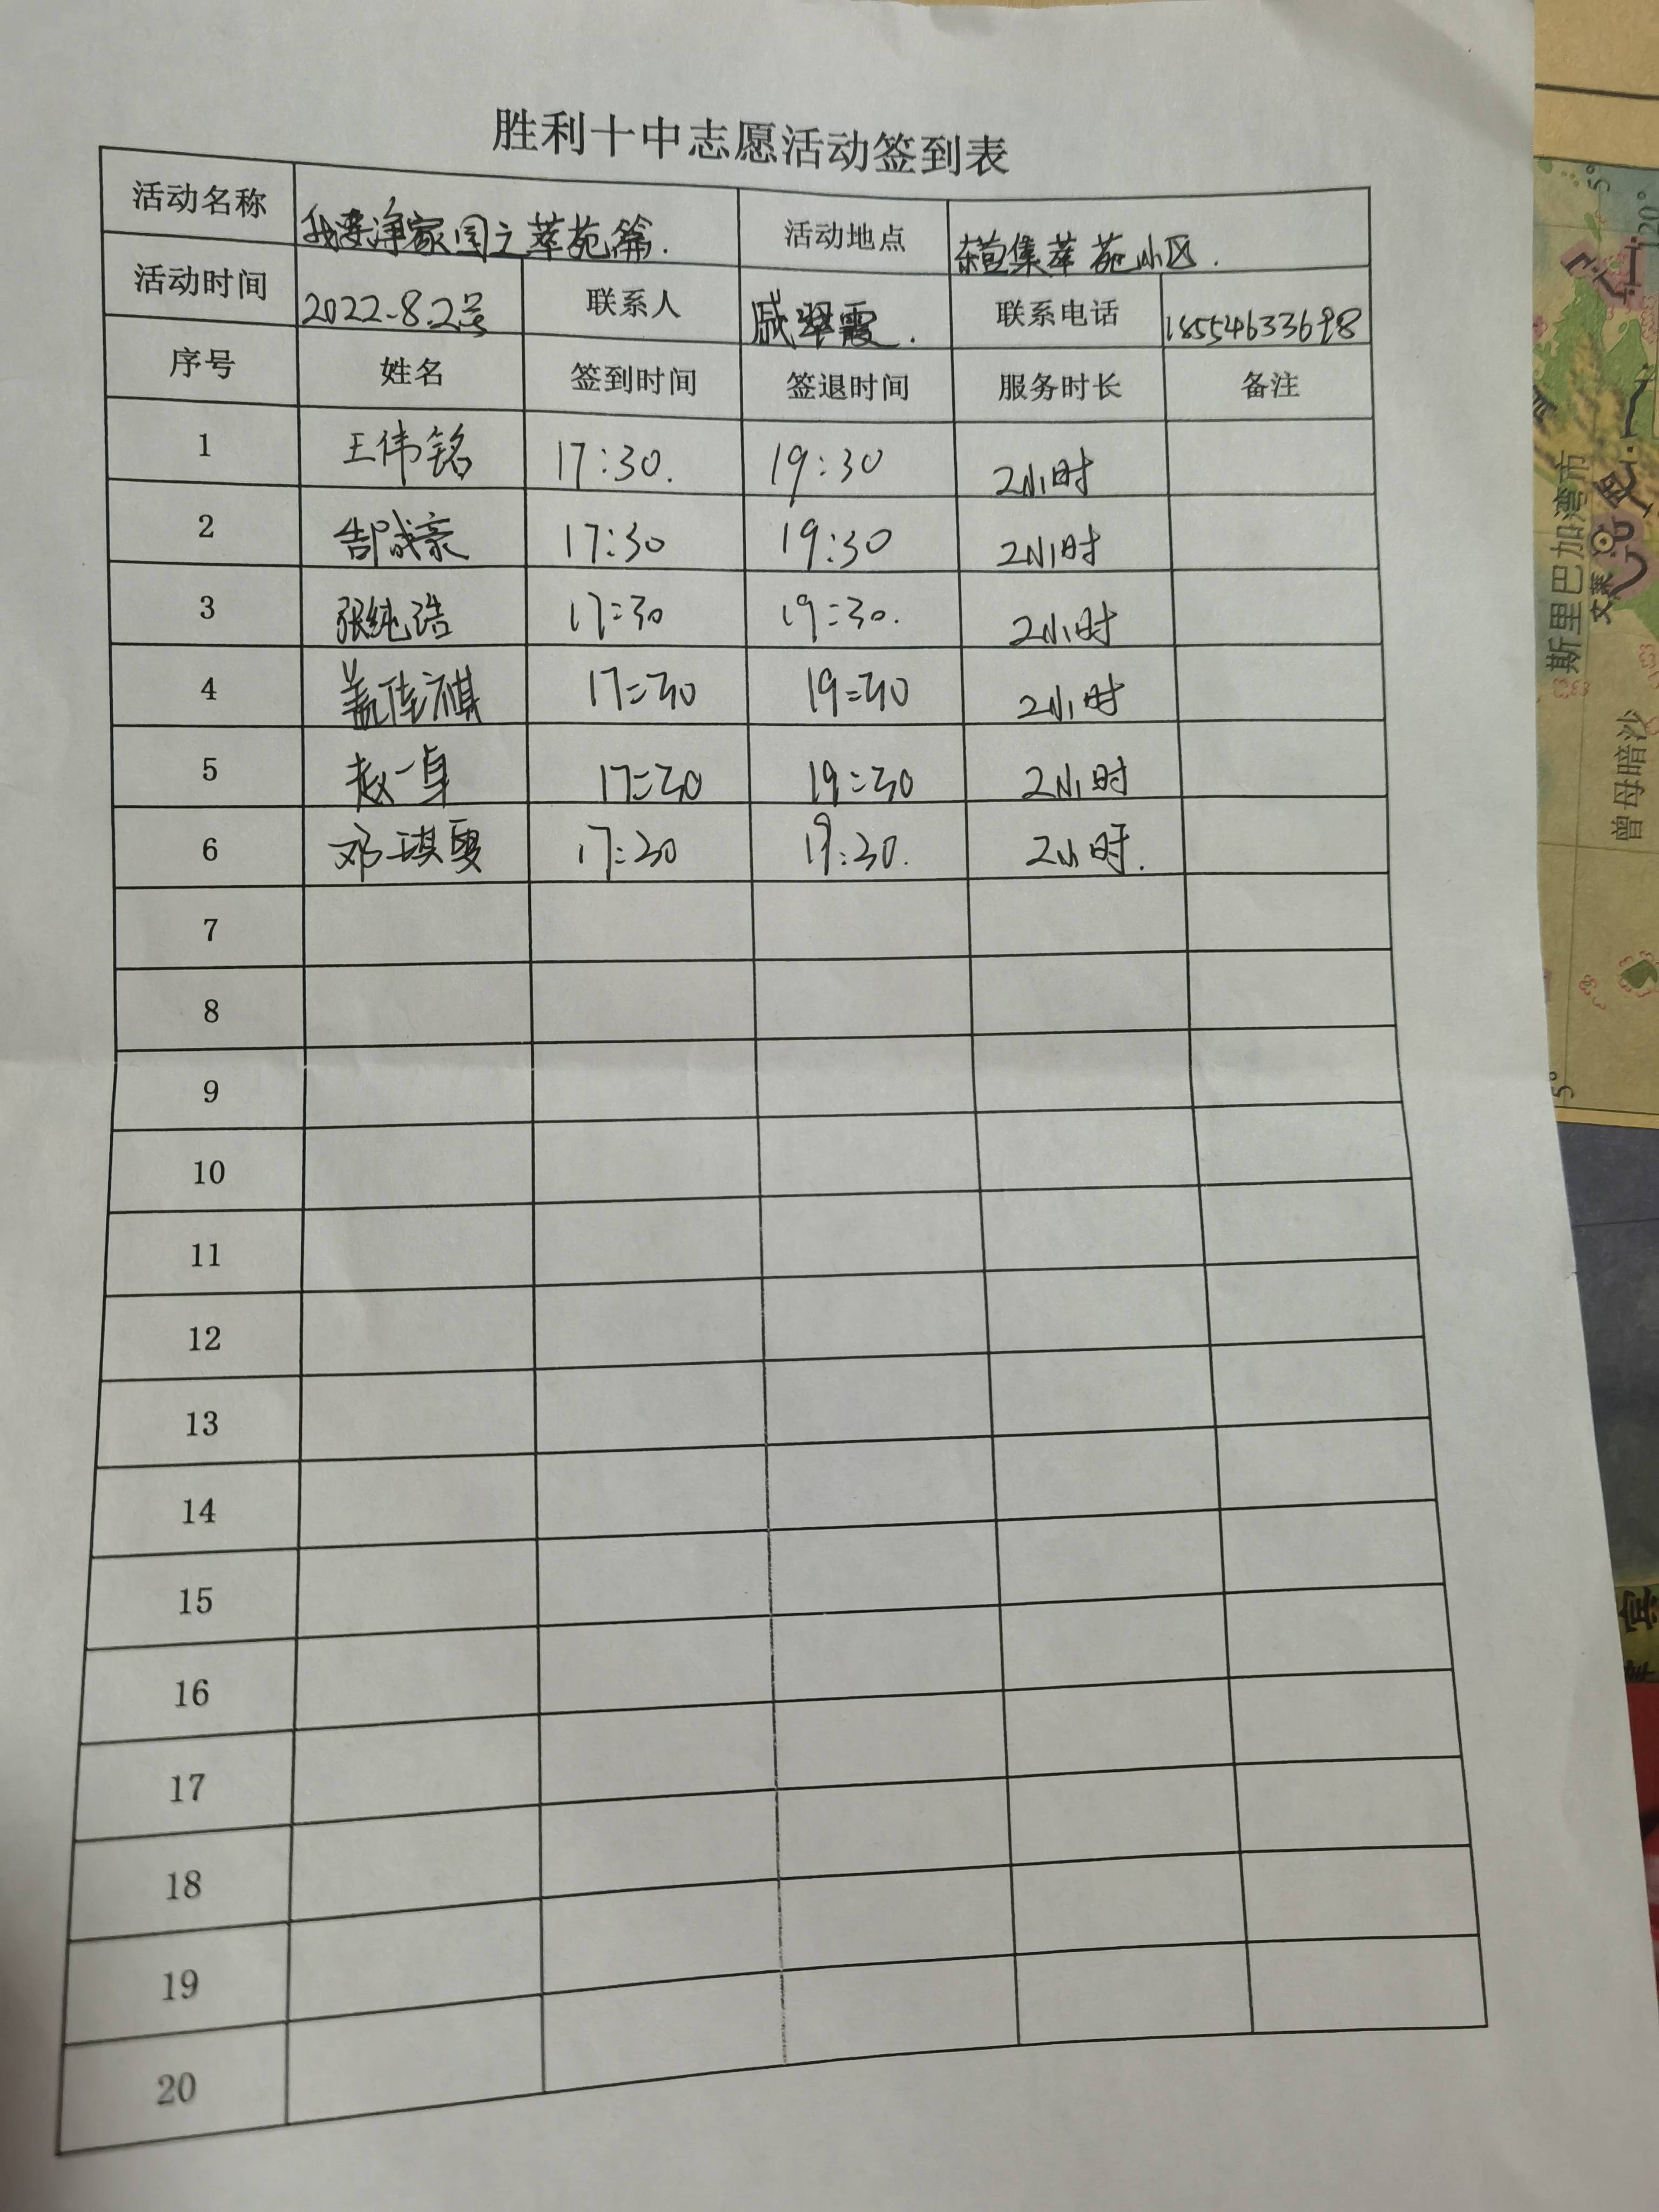 胜利十中志愿活动签到表
活动名称 我爱净家园之萃苑篇. 活动地点 集萃苑小区.
活动时间 2022.8.2号 联系人 戚翠霞. 联系电话 18554633698
序号 姓名 签到时间 签退时间 服务时长 备注
1 王伟铭 17:30. 19:30 2小时
2 郜成豪 17:30 19:30 2小时
3 张纯浩 17:30 19:30. 2小时
4 盖佳祺 17:30 19:30 2小时
5 赵一卓 17:30 19:30 2小时
6 邓琪雯 17:30 19:30. 2小时.
7
8
9
10
11
12
13
14
15
16
17
18
19
20
5°
120°
斯里巴加湾市
文莱
曾母暗沙
5°